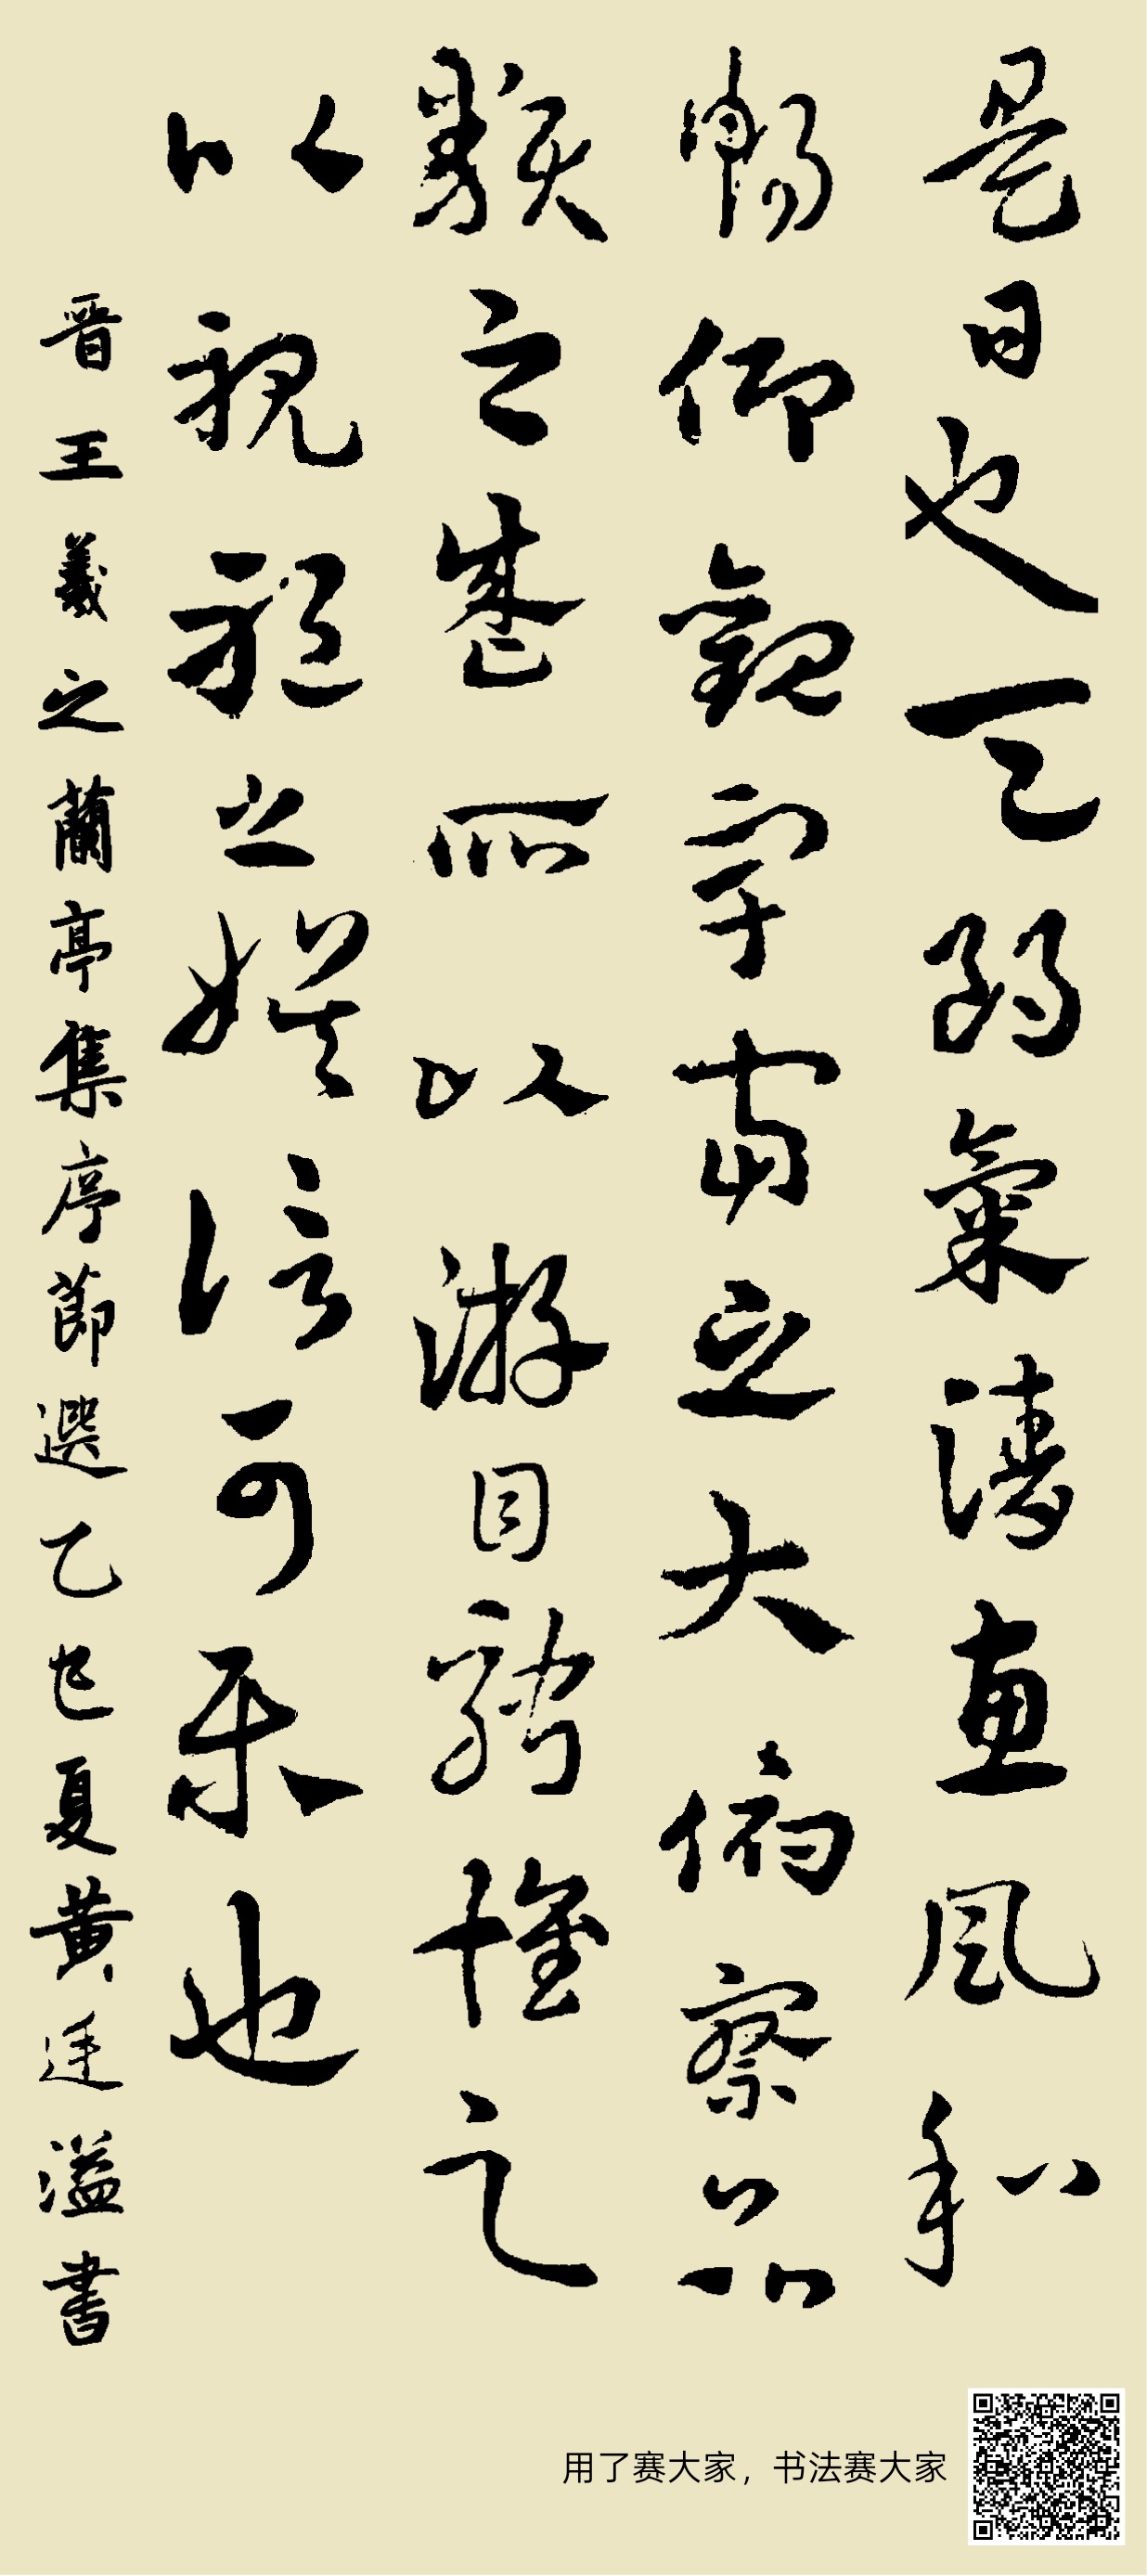 是日也天朗氣清惠風和
暢仰觀宇宙之大俯察品
類之盛所以游目騁懷足
以視聽之娛信可樂也
晋王羲之蘭亭集序節選乙巳夏黃廷溢書
用了赛大家，书法赛大家